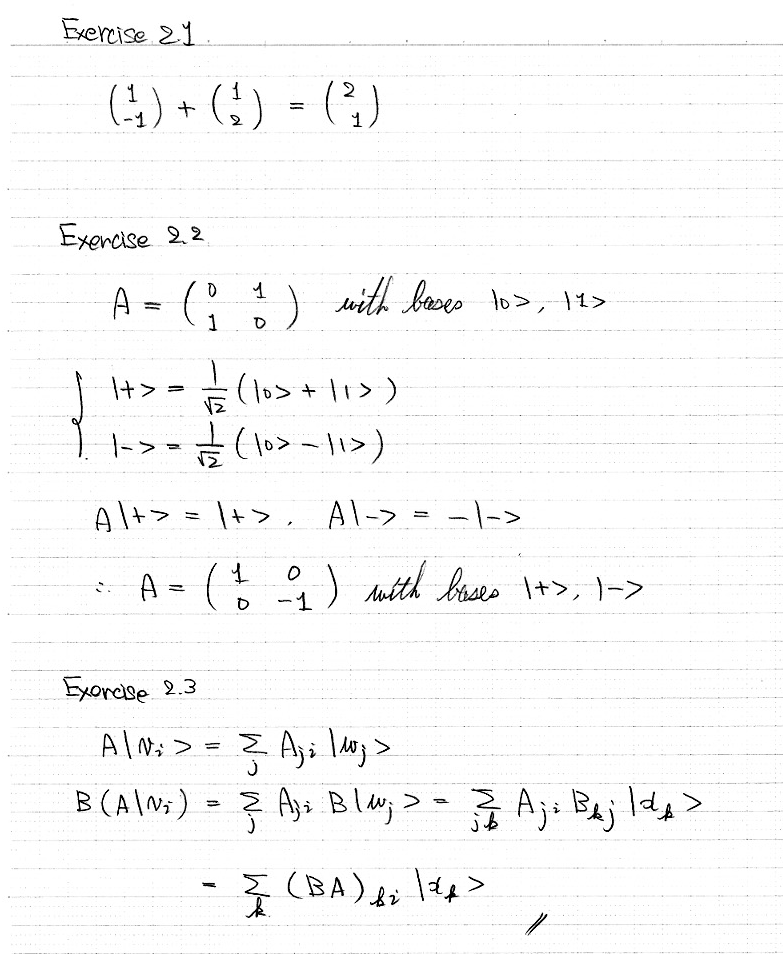 Exercise 2.1
(1 -1) + (1 2) = (2 1)
Exercise 2.2
A = (0 1 1 0) with bases |0>, |1>
|+> = 1/√2 (|0> + |1>)
|-> = 1/√2 (|0> - |1>)
A|+> = |+>, A|-> = -|->
∴ A = (1 0 0 -1) with bases |+>, |->
Exercise 2.3
A|v_i> = Σ_j A_ji |w_j>
B(A|v_i) = Σ_j A_ji B|w_j> = Σ_jk A_ji B_kj |x_k>
= Σ_k (BA)_ki |x_k>
//